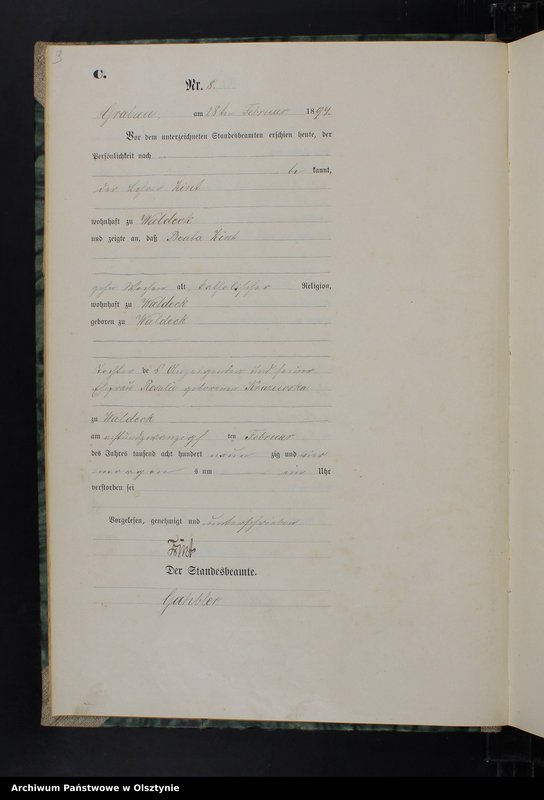 C.
Nr. 8.
Grabau, am 28ten Februar 1894.
Vor dem unterzeichneten Standesbeamten erschien heute, der
Persönlichkeit nach
be kannt,
der Kint
wohnhaft zu Waldeck
und zeigte an, daß Beata Kint
zehn Wochen alt, katholischer Religion,
wohnhaft zu Waldeck
geboren zu Waldeck
Tochter des Anzeigenden und seiner
Ehefrau Rosalie geborenen
zu Waldeck
am achtundzwanzigsten Februar
des Jahres tausend acht hundert neun zig und vier
morgens um ein Uhr
verstorben sei
Vorgelesen, genehmigt und unterschrieben
Kint
Der Standesbeamte.
Archiwum Państwowe w Olsztynie